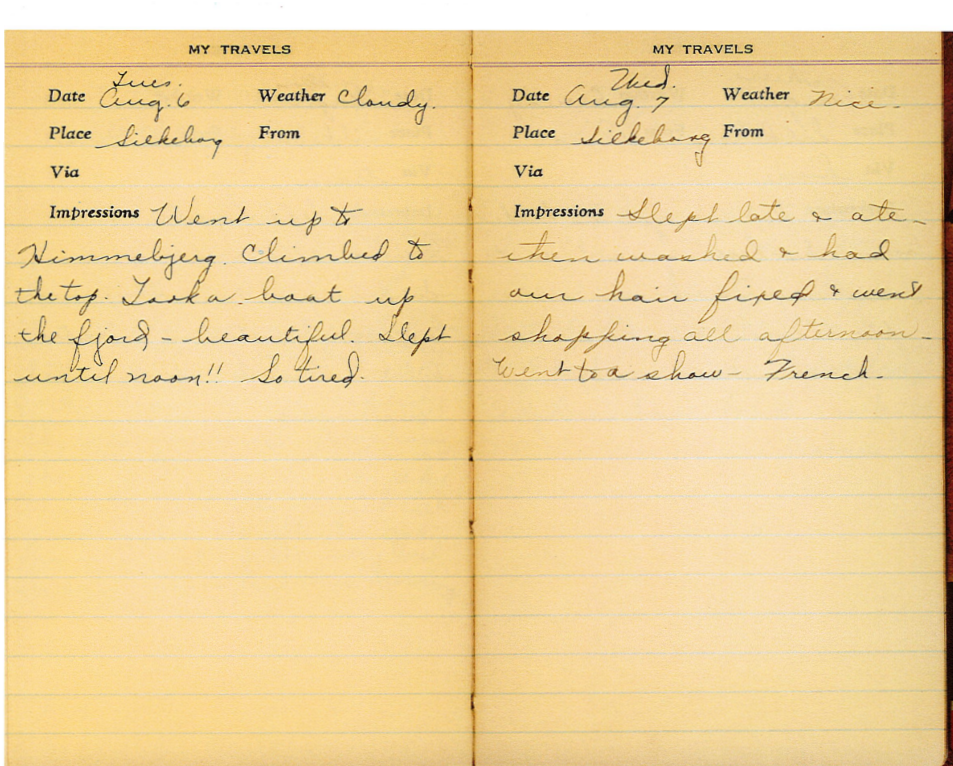 MY TRAVELS
Tues.
Date Aug. 6 Weather Cloudy.
Place Silkeborg From
Via
Impressions Went up to
Himmebjerg. Climbed to
the top. Took a boat up
the fjord - beautiful. Slept
until noon!! So tired.
MY TRAVELS
Wed.
Date Aug. 7 Weather Nice.
Place Silkeborg From
Via
Impressions Slept late & ate -
then washed & had
our hair fixed & went
shopping all afternoon -
Went to a show - French.